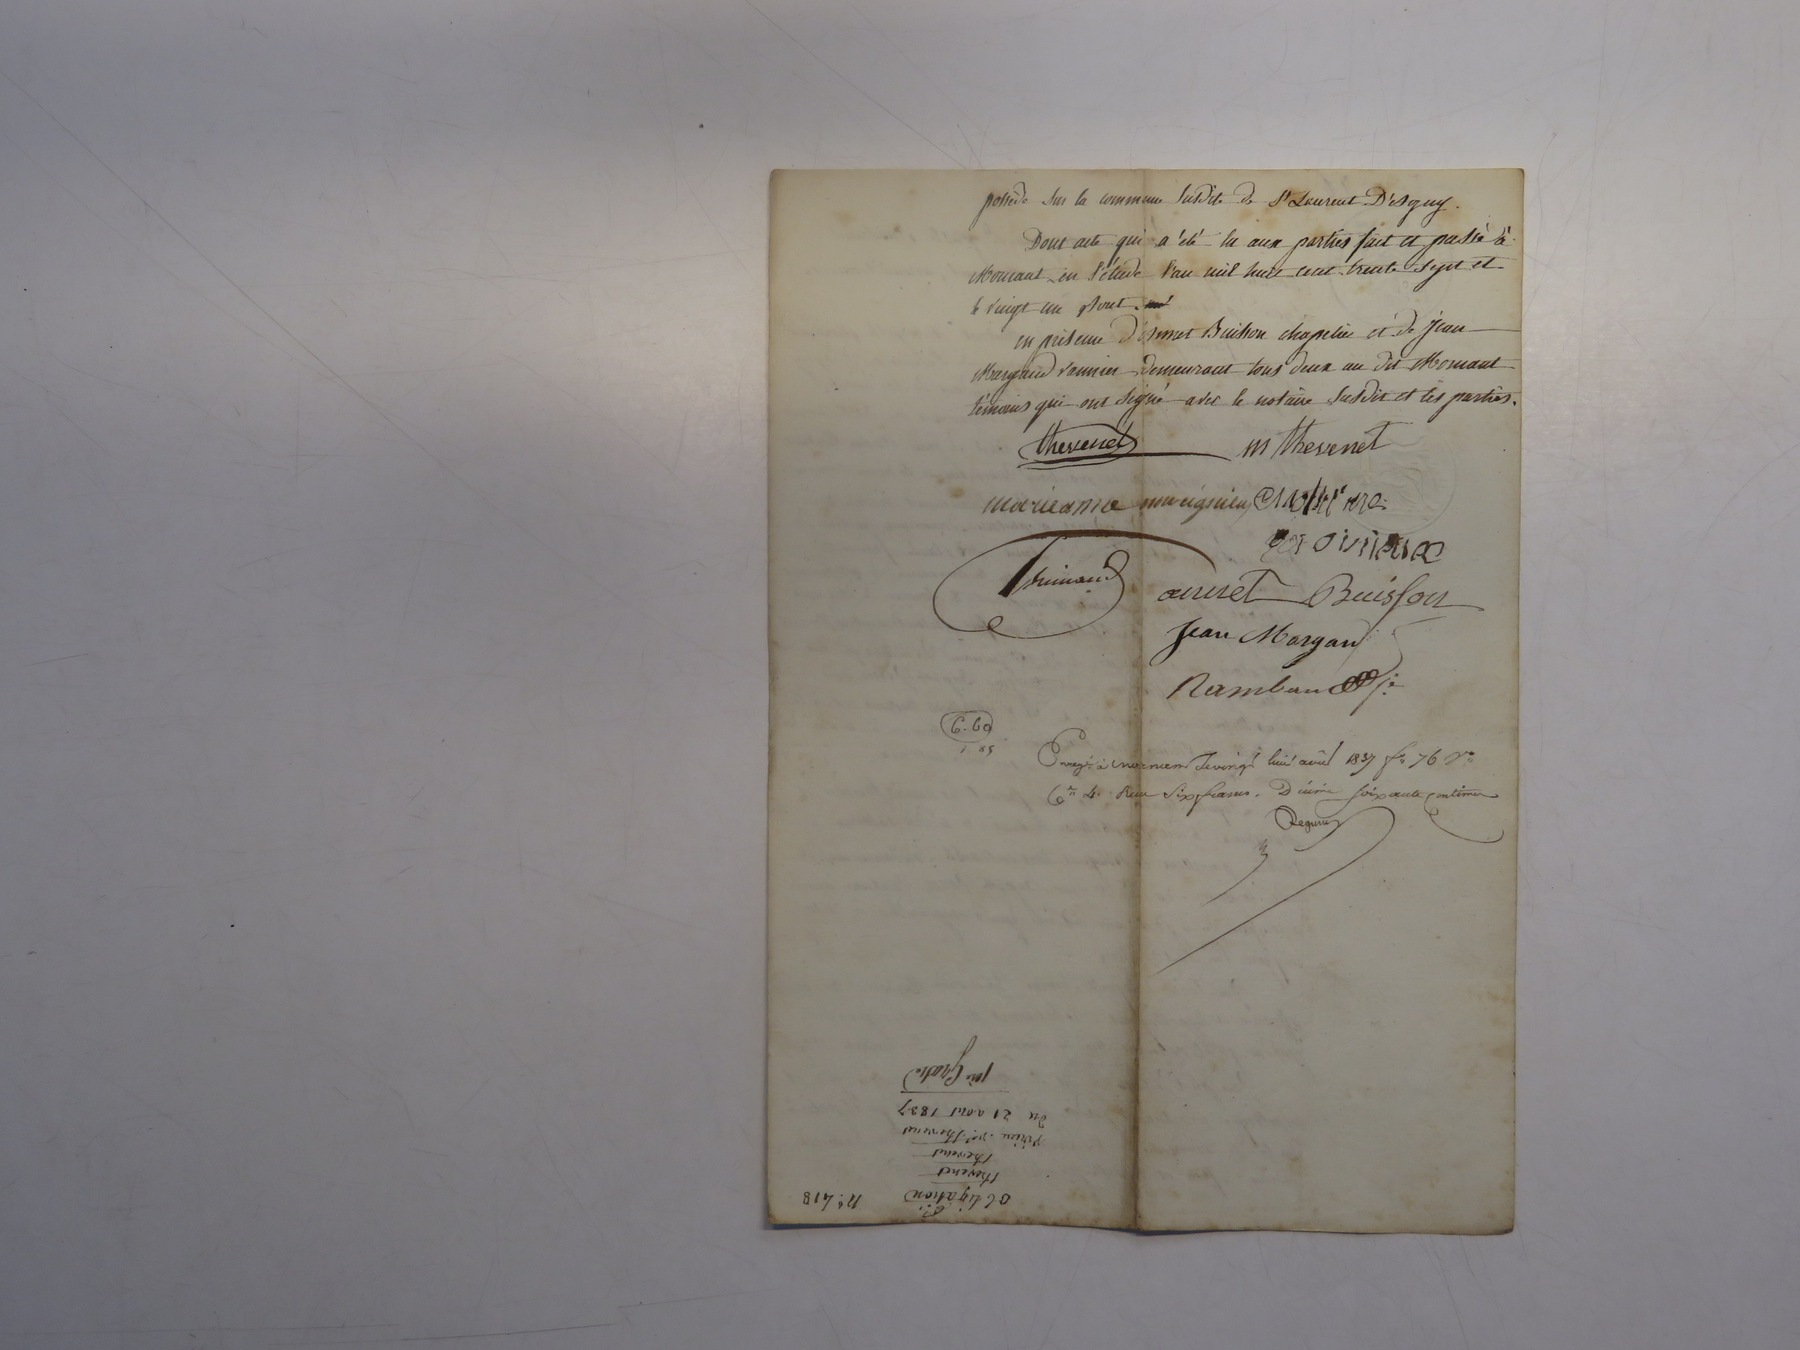 possède sur la commune susdite de St Laurent D'Agny.
Dont acte qui a été lu aux parties fait et passé à
Mornant en l'étude l'an mil huit cent trente sept et
le vingt un aout
en présence d'annet Buisson chapelier et de Jean
Margand vannier demeurant tous deux au dit Mornant
témoins qui ont signé avec le notaire susdit et les parties.
thevenet m thevenet
marieanne
annet Buisson
Jean Margand
Rambaud
6.60
1 85
Enregt à Mornant le vingt huit août 1837 fo 76 Vo
Cse 4. Reçu six francs. Décime soixante centimes
no. 418
obligation
thevenet
thevenet
du 21 aout 1837